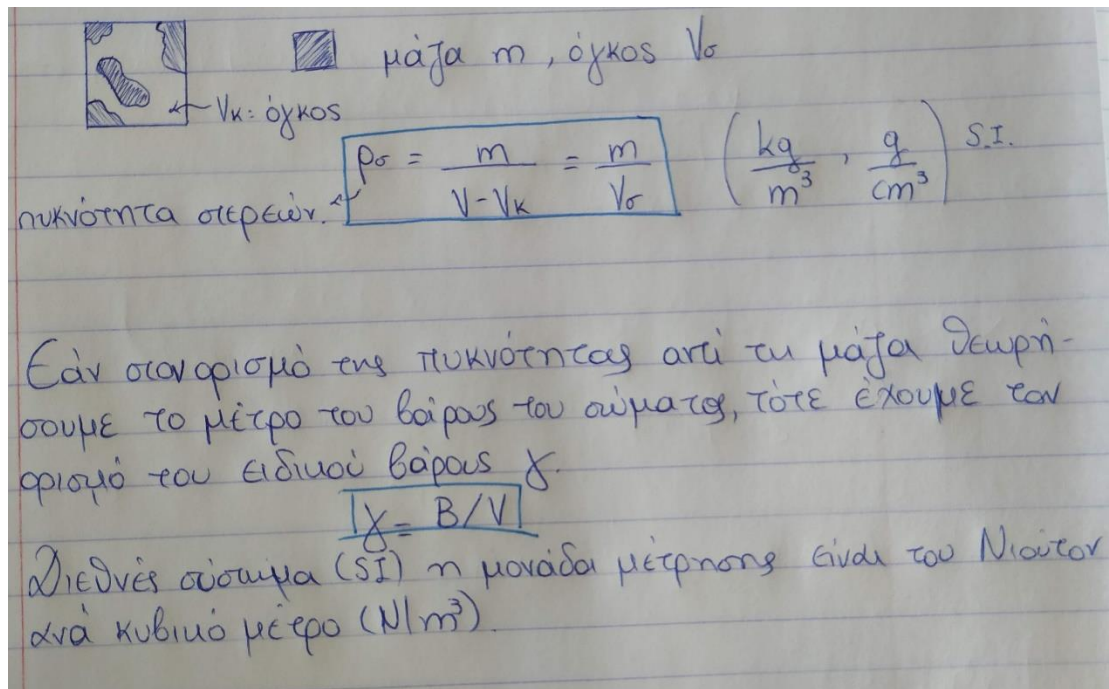 μάζα m, όγκος Vσ
Vκ: όγκος
ρσ = m / (V-Vκ) = m / Vσ (kg/m³, g/cm³) S.I.
πυκνότητα στερεών.
Εάν στον ορισμό της πυκνότητας αντί τη μάζα θεωρή-
σουμε το μέτρο του βάρους του σώματος, τότε έχουμε τον
ορισμό του ειδικού βάρους γ.
γ = B/V
Διεθνές σύστημα (SI) η μονάδα μέτρησης είναι του Νιούτον
ανά κυβικό μέτρο (N/m³).